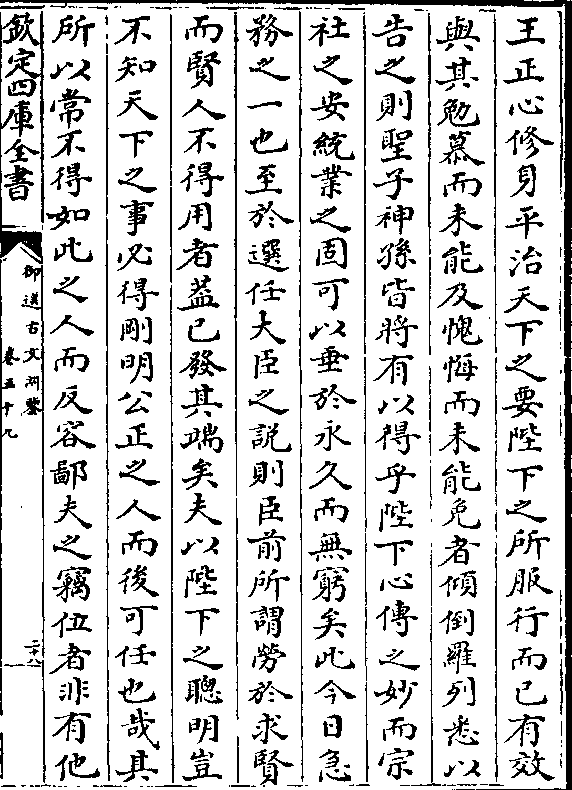 王正心修身平治天下之要陛下之所服行而已有效
與其勉慕而未能及愧悔而未能免者傾倒羅列悉以
告之則聖子神孫皆將有以得乎陛下心傳之妙而宗
社之安統業之固可以垂於永久而無窮矣此今日急
務之一也至於選任大臣之説則臣前所謂勞於求賢
而賢人不得用者葢已發其端矣夫以陛下之聰明豈
不知天下之事必得剛明公正之人而後可任也哉其
所以常不得如此之人而反容鄙夫之竊位者非有他
欽定四庫全書
御選古文淵鑒
卷五十九
二十八